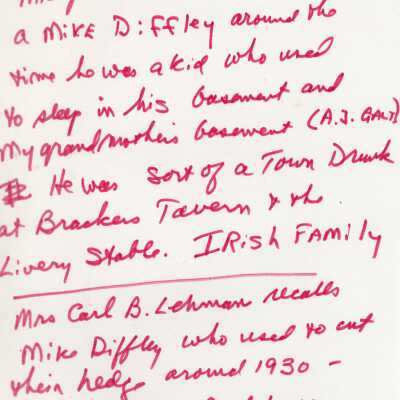 a MIKE Diffley around the
time he was a kid who used
to sleep in his basement and
My grandmothers basement (A.J. GALT)
He was sort of a Town Drunk
at Brackers Tavern & the
Livery Stable. IRish FAMily
Mrs Carl B. Lehman recalls
Mike Diffley who used to cut
their hedge around 1930 -